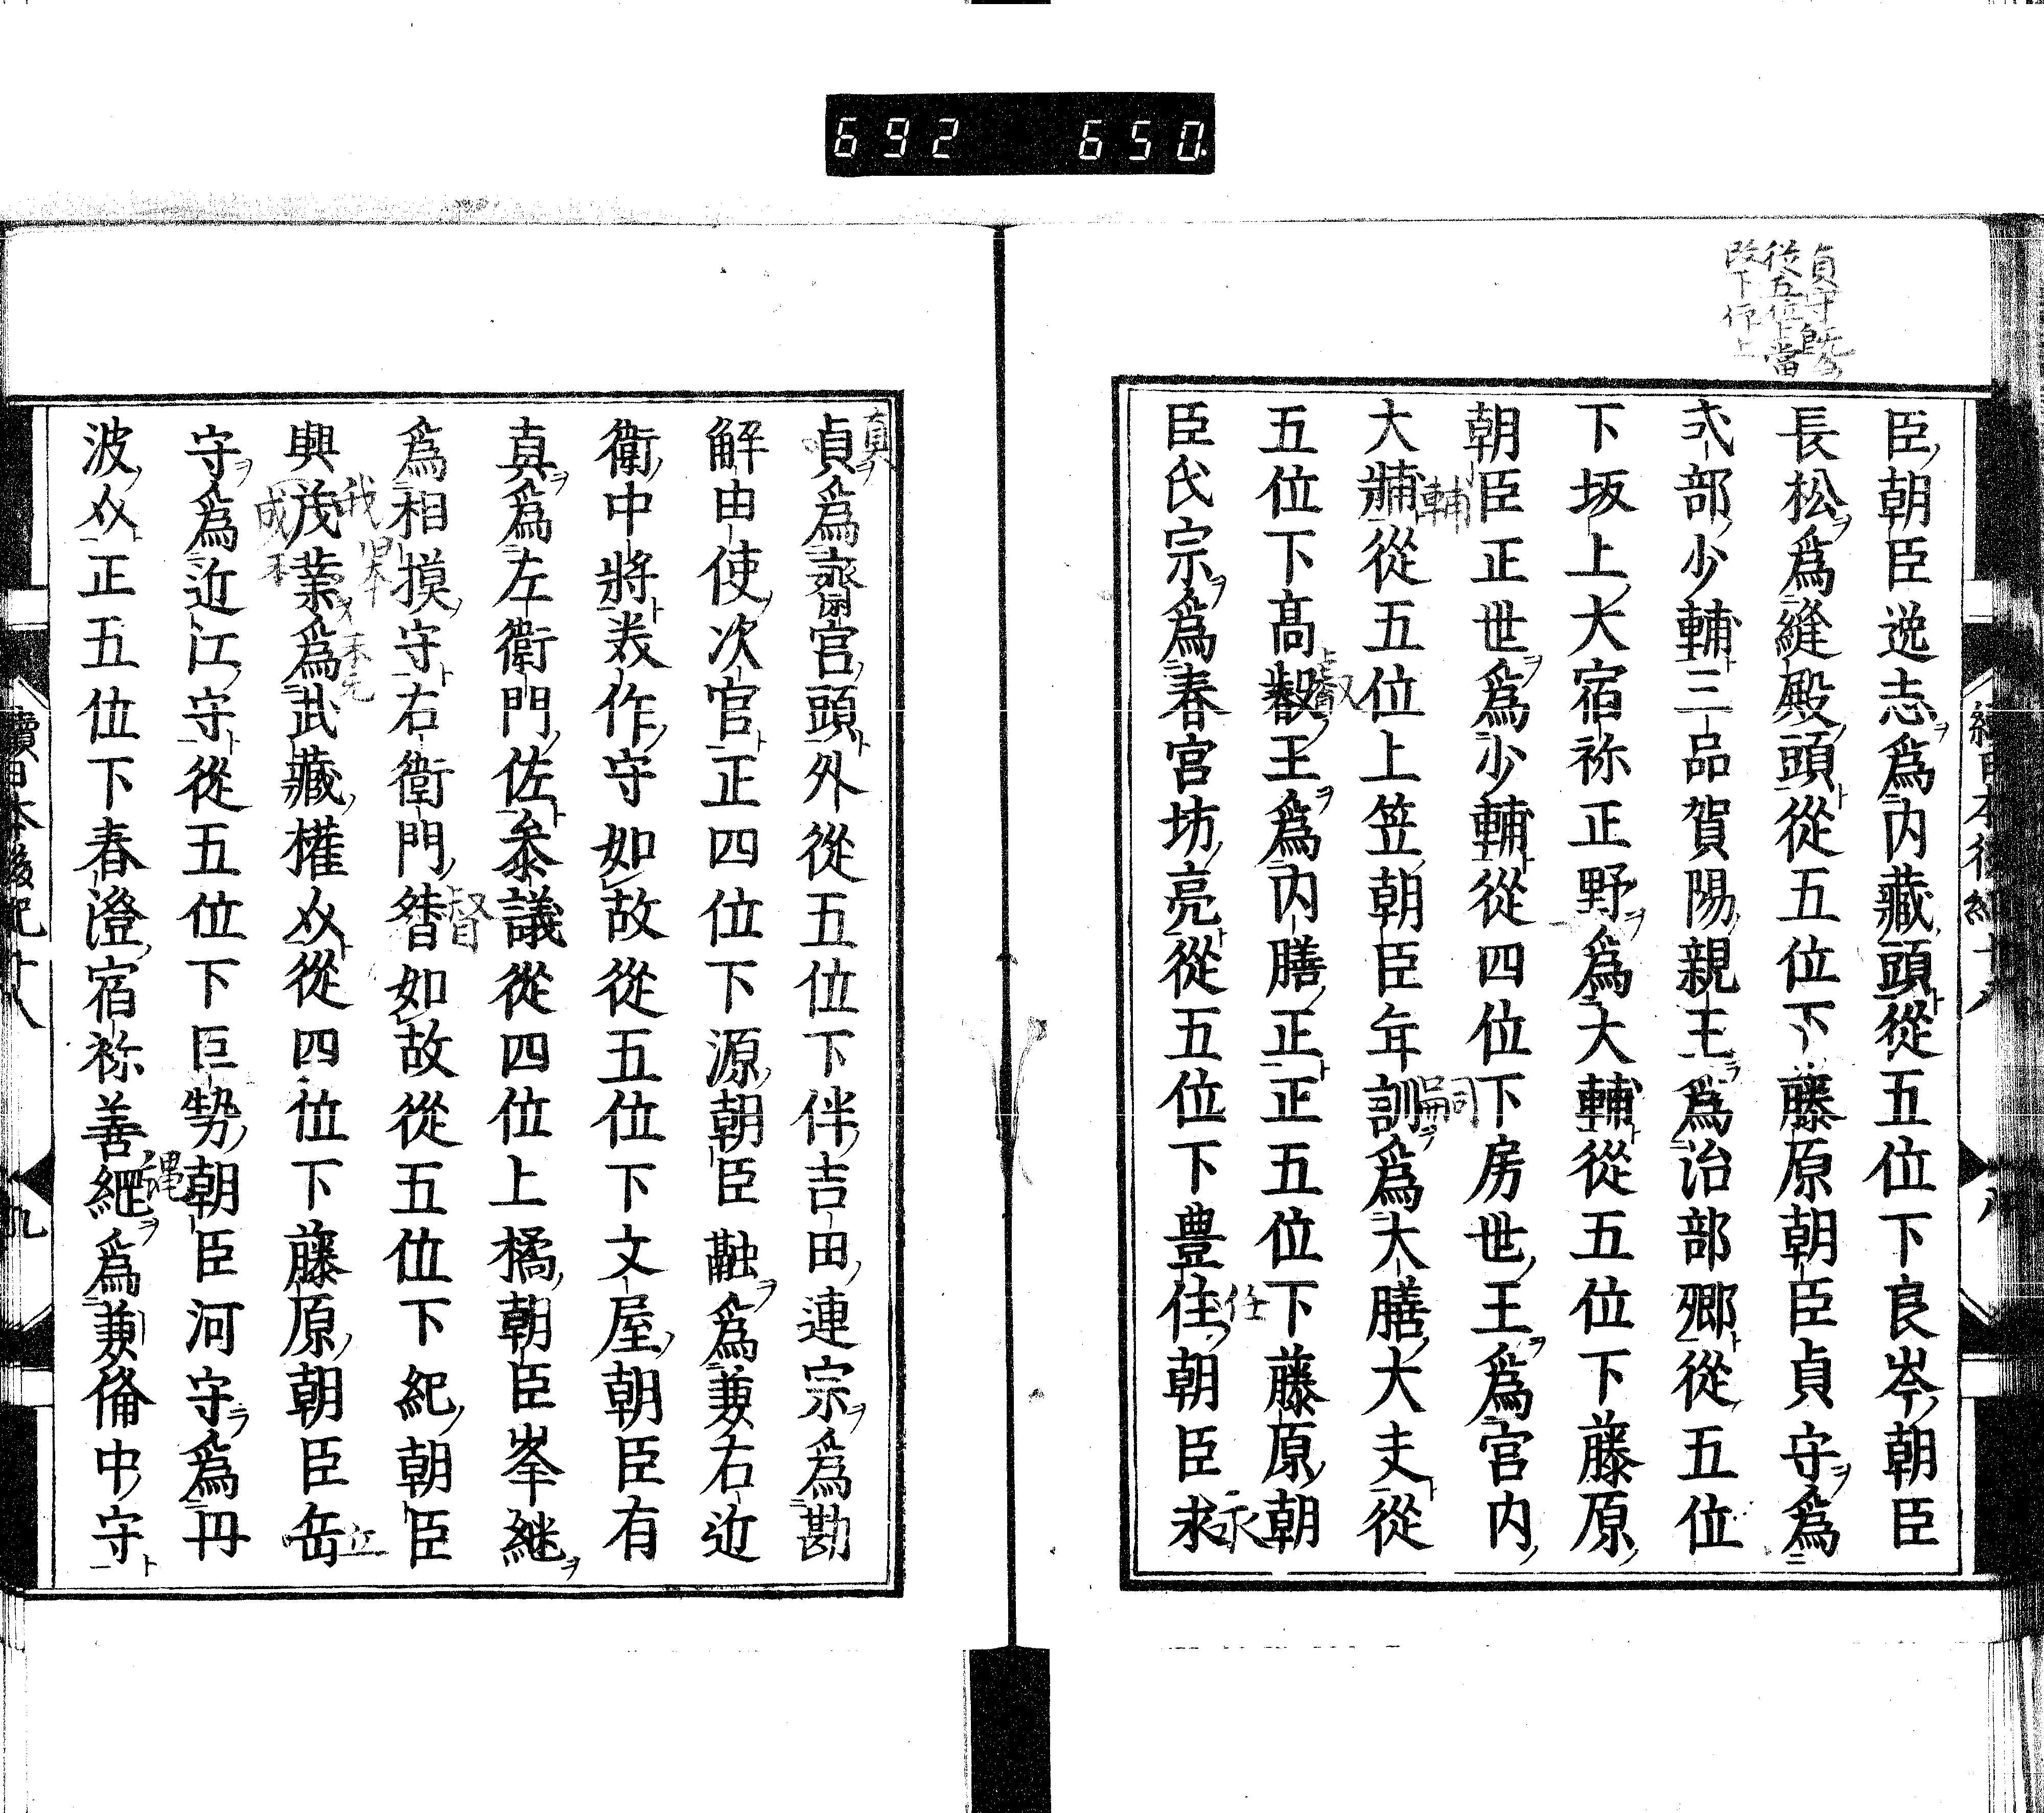 692 650
臣朝臣逸志爲内藏頭從五位下良岑朝臣
長松爲縫殿頭從五位下藤原朝臣貞守爲
式部少輔三品賀陽親王爲治部卿從五位
下坂上大宿祢正野爲大輔從五位下藤原
朝臣正世爲少輔從四位下房世王爲宮内
大輔從五位上笠朝臣年訓爲大膳大夫從
五位下高叡王爲内膳正正五位下藤原朝
臣氏宗爲春宮坊亮從五位下豊住朝臣永
貞爲齋宮頭外從五位下伴吉田連宗爲勘
解由使次官正四位下源朝臣融爲兼右近
衛中將美作守如故從五位下文屋朝臣有
真爲左衛門佐参議從四位上橘朝臣峯継
爲相摸守右衛門督如故從五位下紀朝臣
興茂業爲武藏權介從四位下藤原朝臣岳
守爲近江守從五位下巨勢朝臣河守爲丹
波介正五位下春澄宿祢善縄爲兼俻中守
貞守既爲
從五位上當
改下作上
輔
司
叡
住
永
真
督
丘
縄
續日本後紀十八
八
續日本後紀十八
九